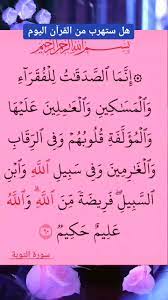 هل ستهرب من القرآن اليوم
بسم الله الرحمن الرحيم
۞ إِنَّمَا ٱلصَّدَقَٰتُ لِلْفُقَرَآءِ
وَٱلْمَسَٰكِينِ وَٱلْعَٰمِلِينَ عَلَيْهَا
وَٱلْمُؤَلَّفَةِ قُلُوبُهُمْ وَفِى ٱلرِّقَابِ
وَٱلْغَٰرِمِينَ وَفِى سَبِيلِ ٱللَّهِ وَٱبْنِ
ٱلسَّبِيلِ ۖ فَرِيضَةً مِّنَ ٱللَّهِ ۗ وَٱللَّهُ
عَلِيمٌ حَكِيمٌ ٦٠
سورة التوبة